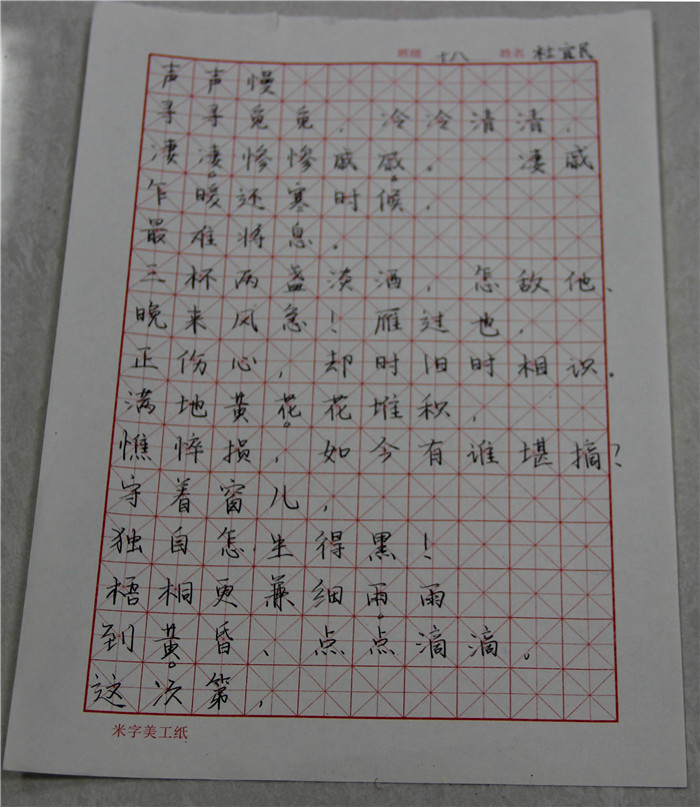 班级 十八 姓名 杜宜民
声声慢
寻寻觅觅，冷冷清清，
凄凄惨惨戚戚。 凄戚
乍暖还寒时候，
最难将息。
三杯两盏淡酒，怎敌他、
晚来风急！雁过也，
正伤心，却时旧时相识。
满地黄花花堆积，
憔悴损，如今有谁堪摘？
守着窗儿，
独自怎生得黑！
梧桐更兼细雨雨
到黄昏、点点滴滴。
这次第，
米字美工纸